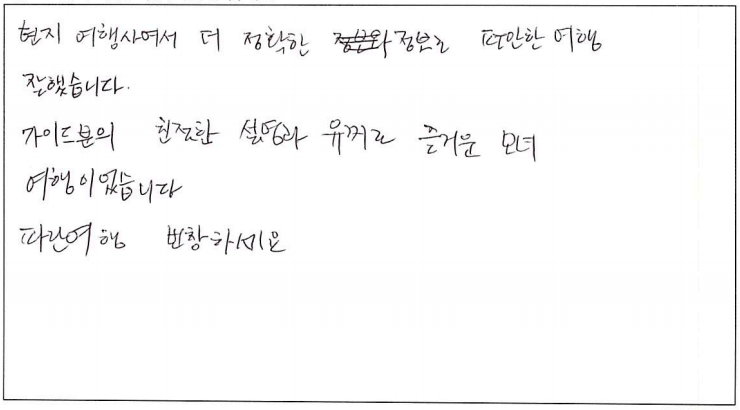 현지 여행사여서 더 정확한 정보로 편안한 여행
잘했습니다.
가이드분의 친절한 설명과 유머로 즐거운 모녀
여행이었습니다
파란여행 번창하세요